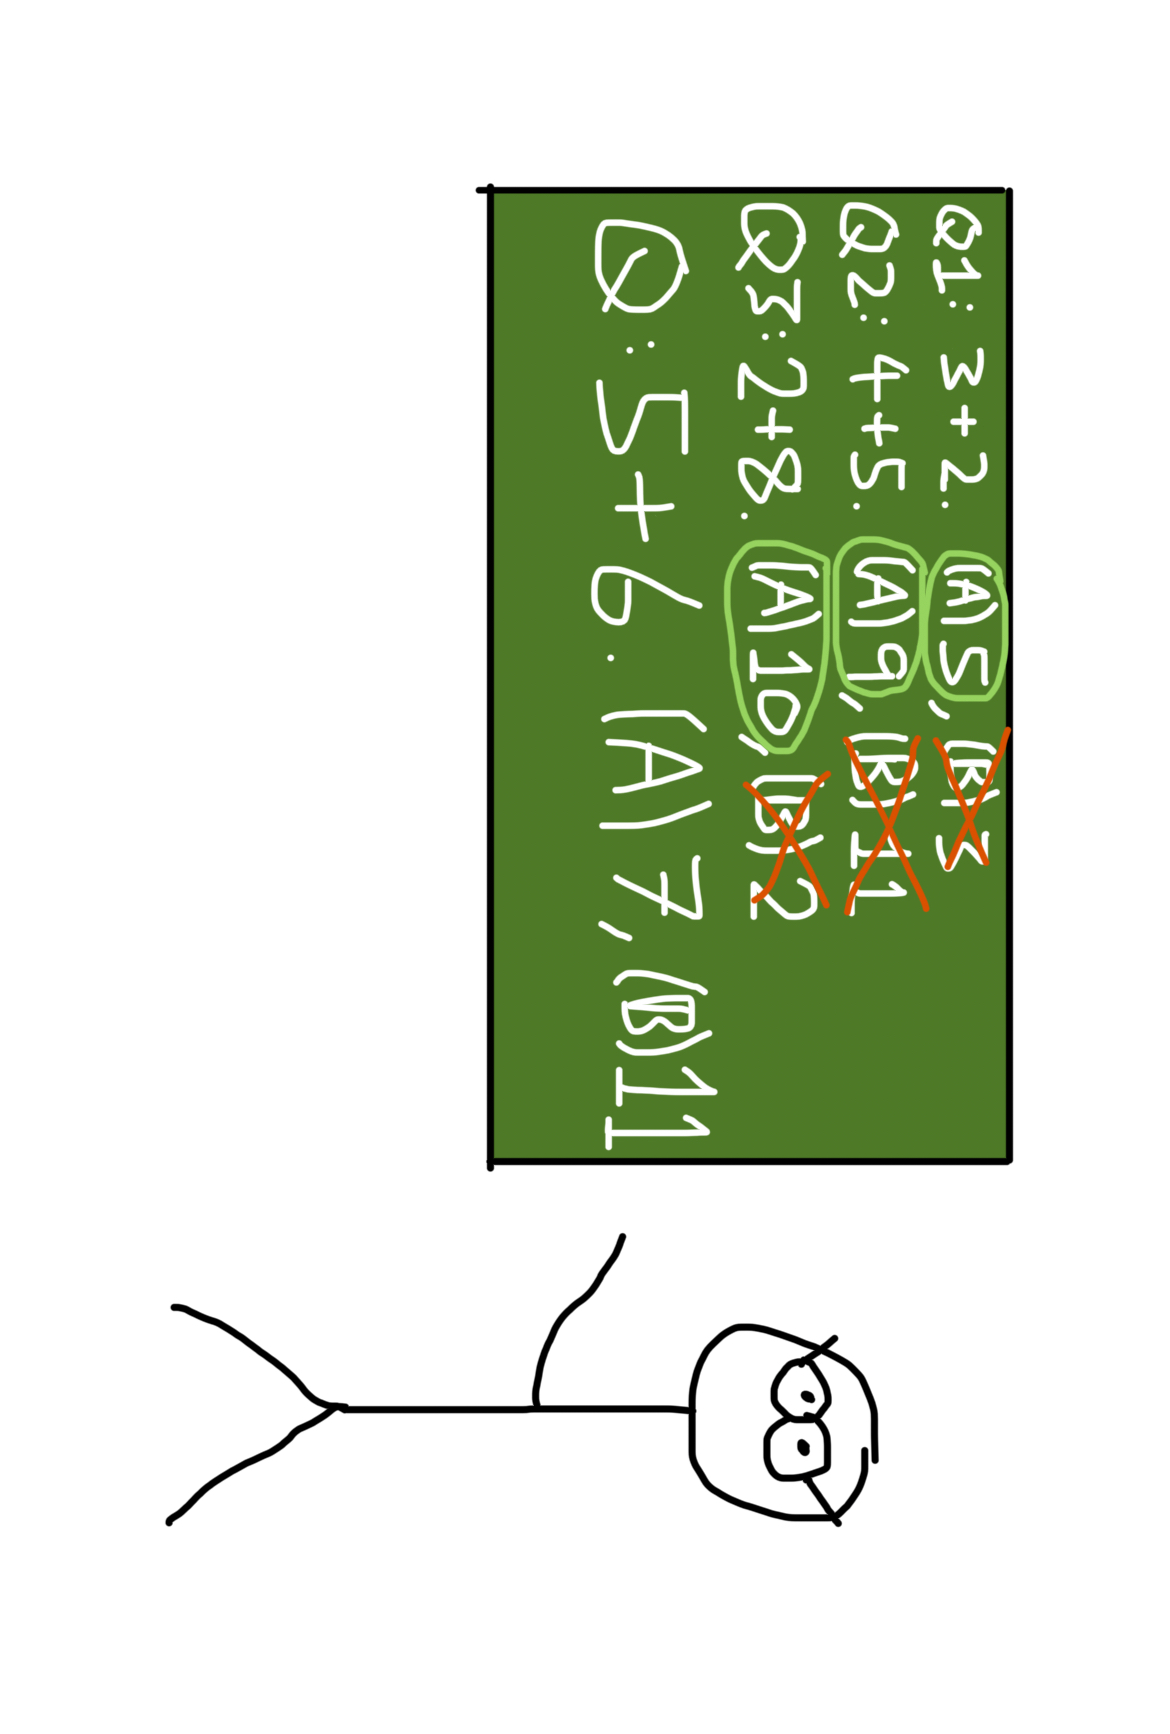 Q1: 3+2. (A)5, (B)3
Q2: 4+5. (A)9, (B)11
Q3: 2+8. (A)10, (B)2
Q: 5+6. (A)7, (B)11